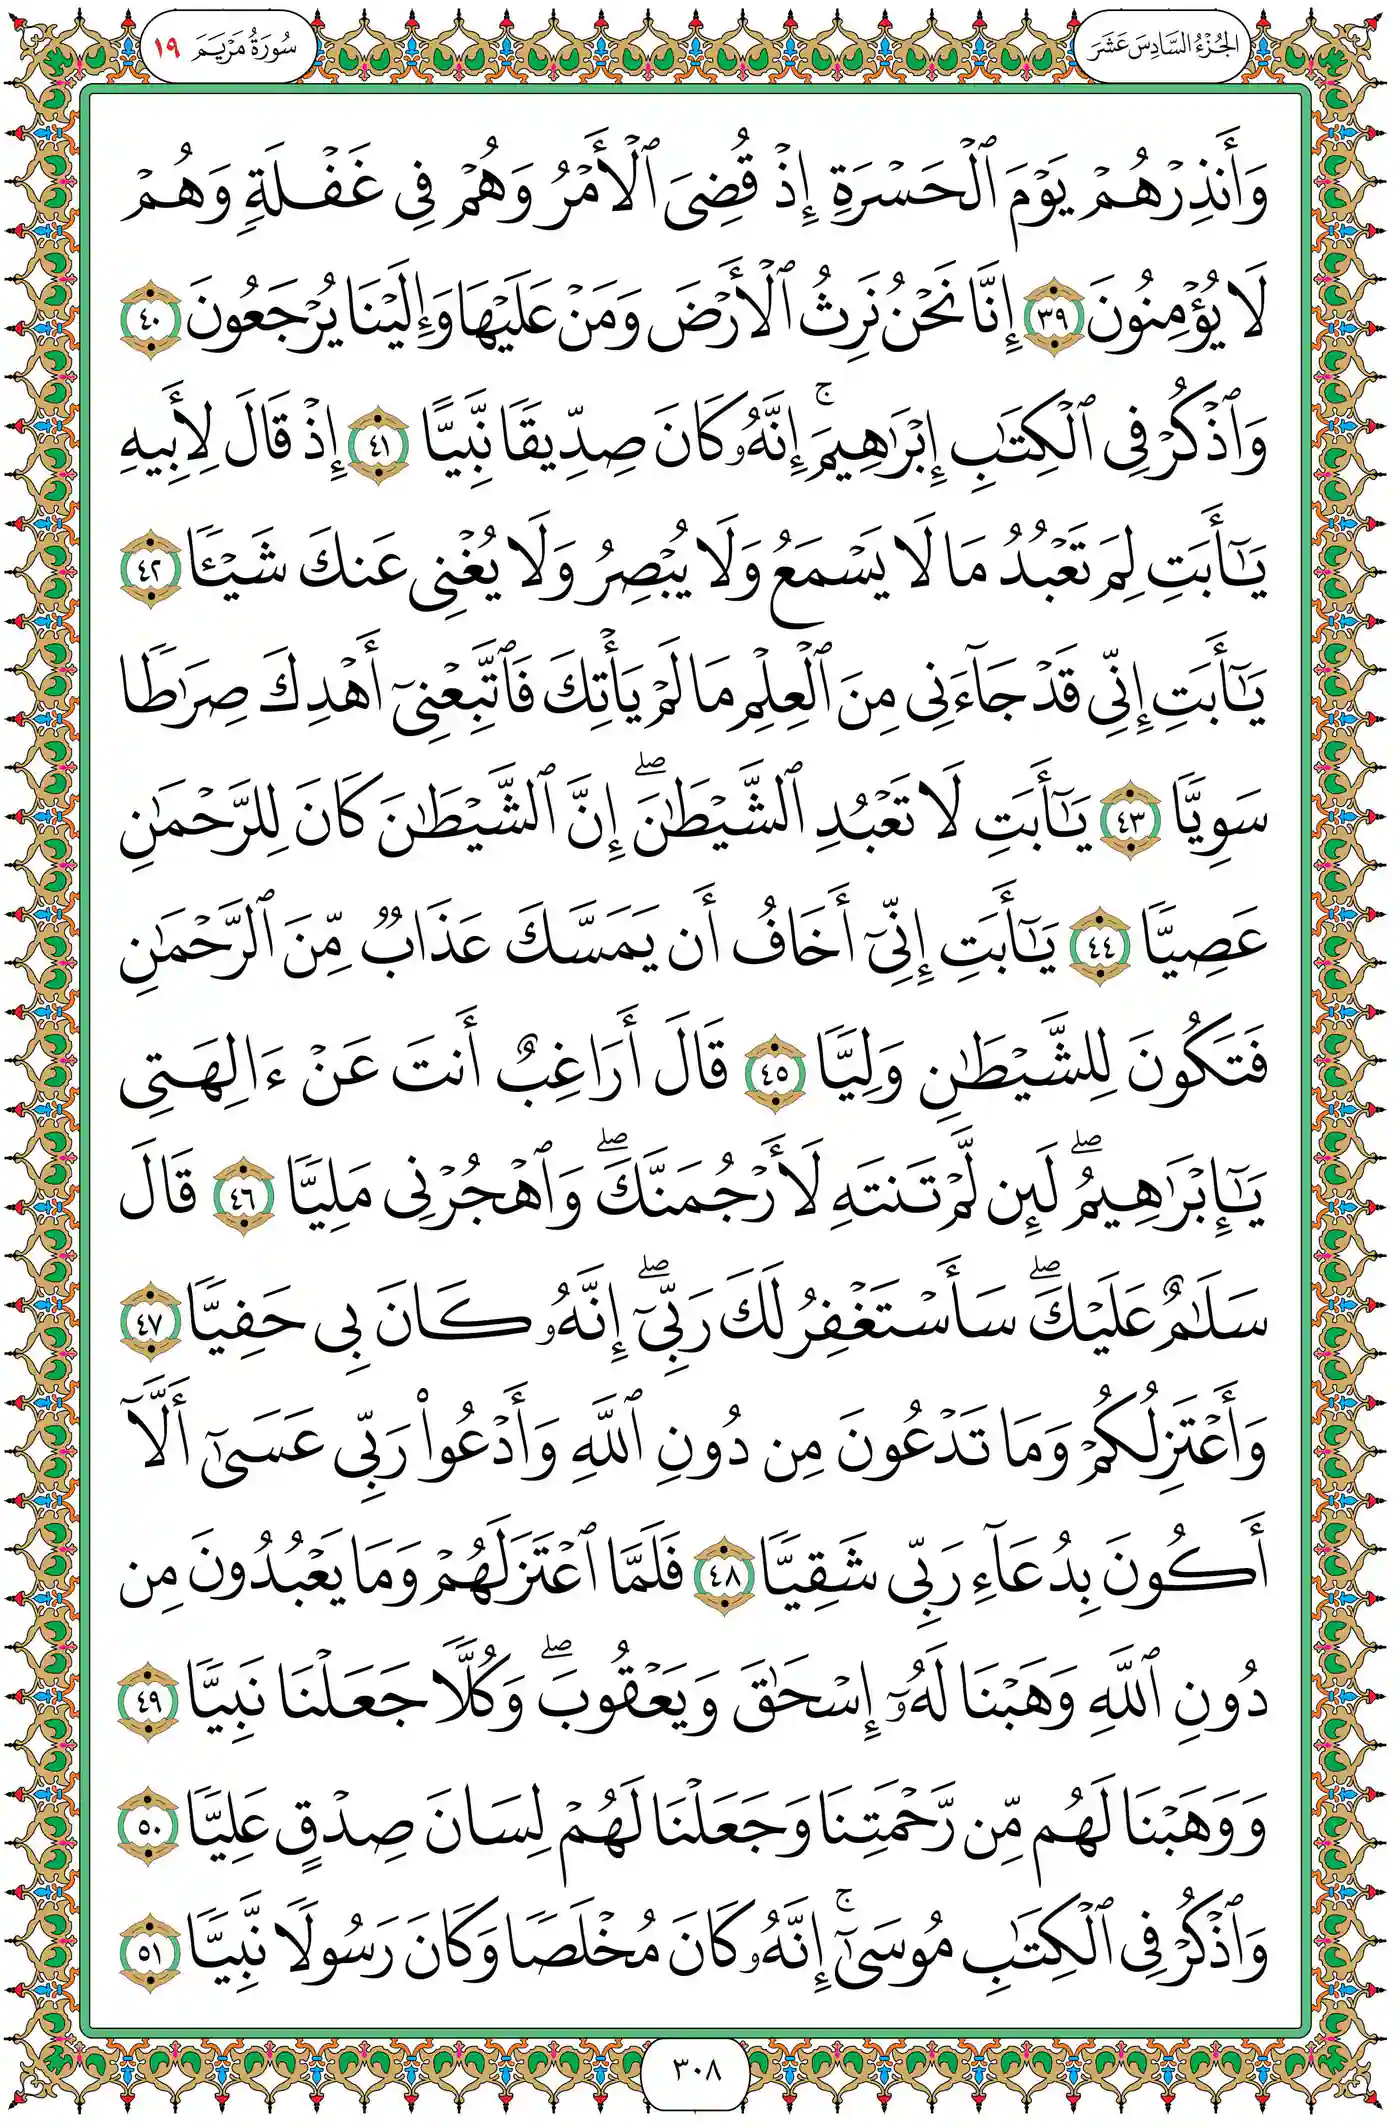 الجُزْءُ السَّادِسَ عَشَرَ
سُورَةُ مَرْيَمَ ١٩
وَأَنذِرْهُمْ يَوْمَ ٱلْحَسْرَةِ إِذْ قُضِىَ ٱلْأَمْرُ وَهُمْ فِى غَفْلَةٍ وَهُمْ
لَا يُؤْمِنُونَ ٣٩ إِنَّا نَحْنُ نَرِثُ ٱلْأَرْضَ وَمَنْ عَلَيْهَا وَإِلَيْنَا يُرْجَعُونَ ٤٠
وَٱذْكُرْ فِى ٱلْكِتَٰبِ إِبْرَٰهِيمَ ۚ إِنَّهُۥ كَانَ صِدِّيقًا نَّبِيًّا ٤١ إِذْ قَالَ لِأَبِيهِ
يَٰٓأَبَتِ لِمَ تَعْبُدُ مَا لَا يَسْمَعُ وَلَا يُبْصِرُ وَلَا يُغْنِى عَنكَ شَيْـًٔا ٤٢
يَٰٓأَبَتِ إِنِّى قَدْ جَآءَنِى مِنَ ٱلْعِلْمِ مَا لَمْ يَأْتِكَ فَٱتَّبِعْنِىٓ أَهْدِكَ صِرَٰطًا
سَوِيًّا ٤٣ يَٰٓأَبَتِ لَا تَعْبُدِ ٱلشَّيْطَٰنَ ۖ إِنَّ ٱلشَّيْطَٰنَ كَانَ لِلرَّحْمَٰنِ
عَصِيًّا ٤٤ يَٰٓأَبَتِ إِنِّىٓ أَخَافُ أَن يَمَسَّكَ عَذَابٌ مِّنَ ٱلرَّحْمَٰنِ
فَتَكُونَ لِلشَّيْطَٰنِ وَلِيًّا ٤٥ قَالَ أَرَاغِبٌ أَنتَ عَنْ ءَالِهَتِى
يَٰٓإِبْرَٰهِيمُ ۖ لَئِن لَّمْ تَنتَهِ لَأَرْجُمَنَّكَ ۖ وَٱهْجُرْنِى مَلِيًّا ٤٦ قَالَ
سَلَٰمٌ عَلَيْكَ ۖ سَأَسْتَغْفِرُ لَكَ رَبِّىٓ ۖ إِنَّهُۥ كَانَ بِى حَفِيًّا ٤٧
وَأَعْتَزِلُكُمْ وَمَا تَدْعُونَ مِن دُونِ ٱللَّهِ وَأَدْعُوا۟ رَبِّى عَسَىٰٓ أَلَّآ
أَكُونَ بِدُعَآءِ رَبِّى شَقِيًّا ٤٨ فَلَمَّا ٱعْتَزَلَهُمْ وَمَا يَعْبُدُونَ مِن
دُونِ ٱللَّهِ وَهَبْنَا لَهُۥٓ إِسْحَٰقَ وَيَعْقُوبَ ۖ وَكُلًّا جَعَلْنَا نَبِيًّا ٤٩
وَوَهَبْنَا لَهُم مِّن رَّحْمَتِنَا وَجَعَلْنَا لَهُمْ لِسَانَ صِدْقٍ عَلِيًّا ٥٠
وَٱذْكُرْ فِى ٱلْكِتَٰبِ مُوسَىٰٓ ۚ إِنَّهُۥ كَانَ مُخْلَصًا وَكَانَ رَسُولًا نَّبِيًّا ٥١
٣٠٨